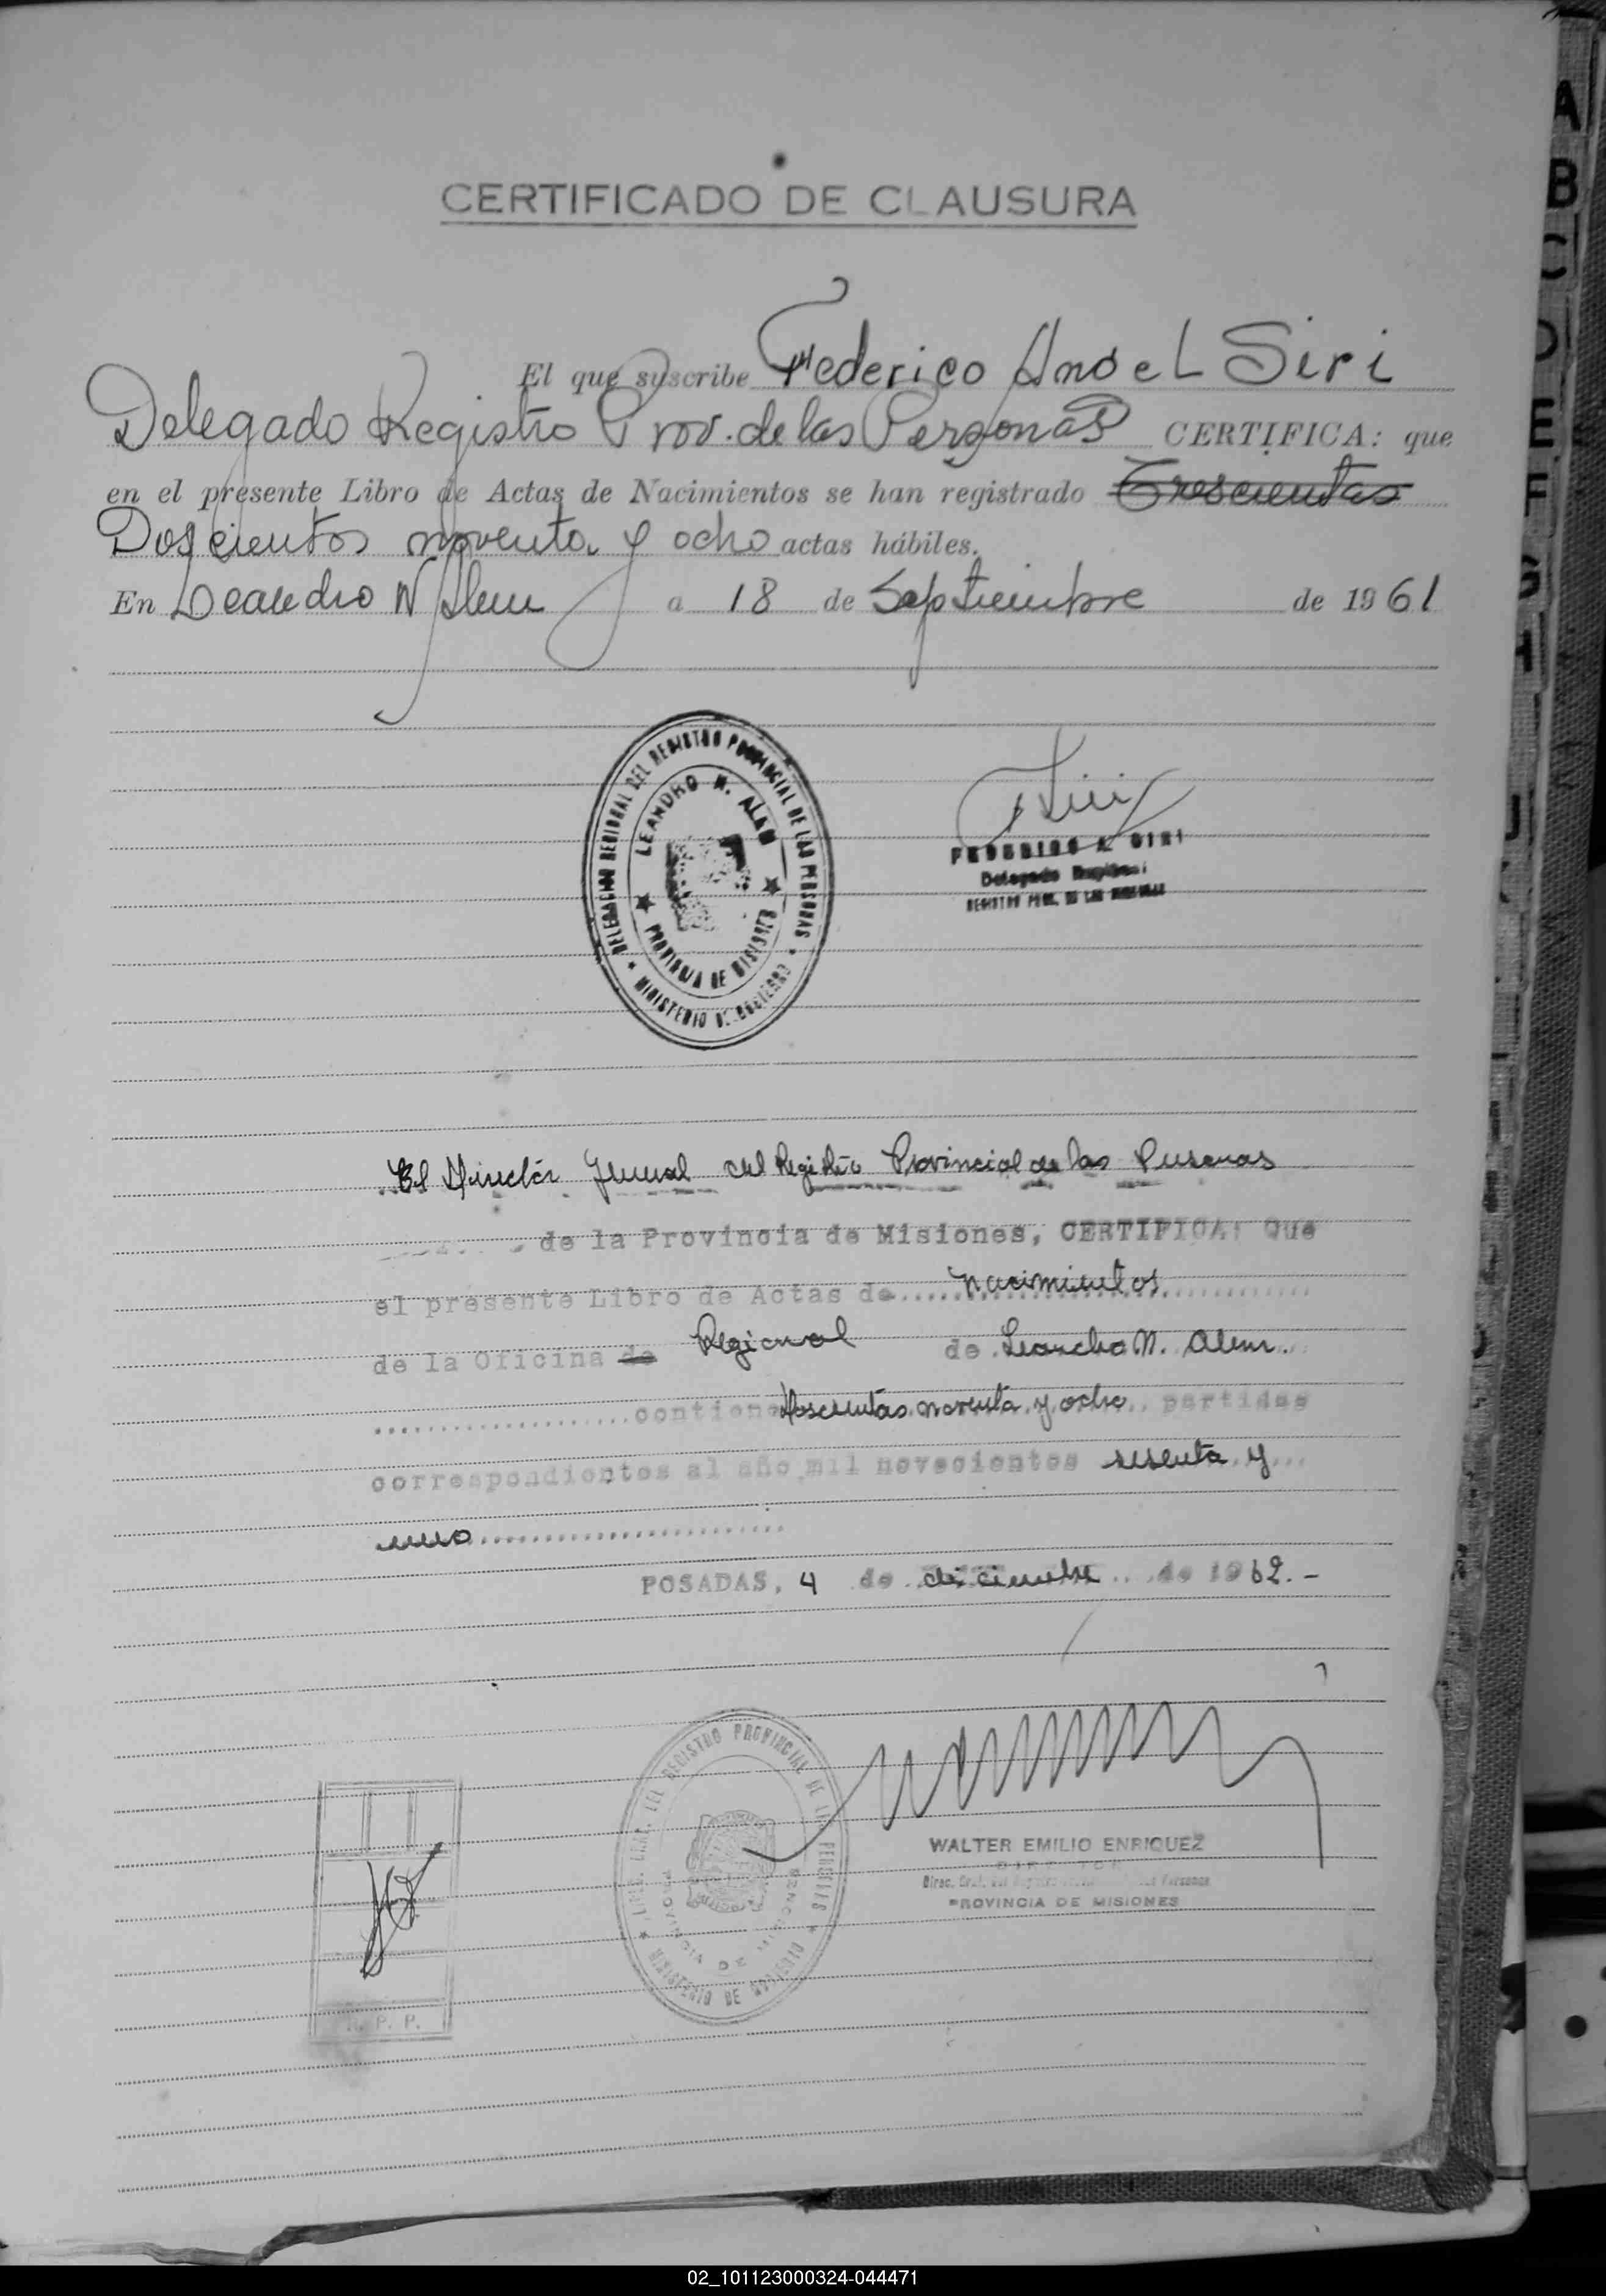 CERTIFICADO DE CLAUSURA
El que suscribe Federico Angel Siri
Delegado Registro Prov. de las Personas CERTIFICA: que
en el presente Libro de Actas de Nacimientos se han registrado Trescientas
Doscientos noventa y ocho actas hábiles.
En Leandro N Alem a 18 de Septiembre de 1961
DELEGACION REGIONAL DEL REGISTRO PROVINCIAL DE LAS PERSONAS
LEANDRO N. ALEM
PROVINCIA DE MISIONES
MINISTERIO DE GOBIERNO
Siri
FEDERICO A. SIRI
Delegado Regional
REGISTRO PROV. DE LAS PERSONAS
El Director General del Registro Provincial de las Personas
de la Provincia de Misiones, CERTIFICA: Que
el presente Libro de Actas de nacimientos
de la Oficina de Regional de Leandro N. Alem.
contiene doscientas noventa y ocho partidas
correspondientes al año mil novecientos sesenta y
uno
POSADAS, 4 de diciembre de 1962.-
REGISTRO PROVINCIAL DE LAS PERSONAS
PROVINCIA DE MISIONES
MINISTERIO DE GOBIERNO
WALTER EMILIO ENRIQUEZ
DIRECTOR
Direc. Gral. del Registro Personas
PROVINCIA DE MISIONES
R. P. P.
A
B
C
D
E
F
G
H
J
02_101123000324-044471